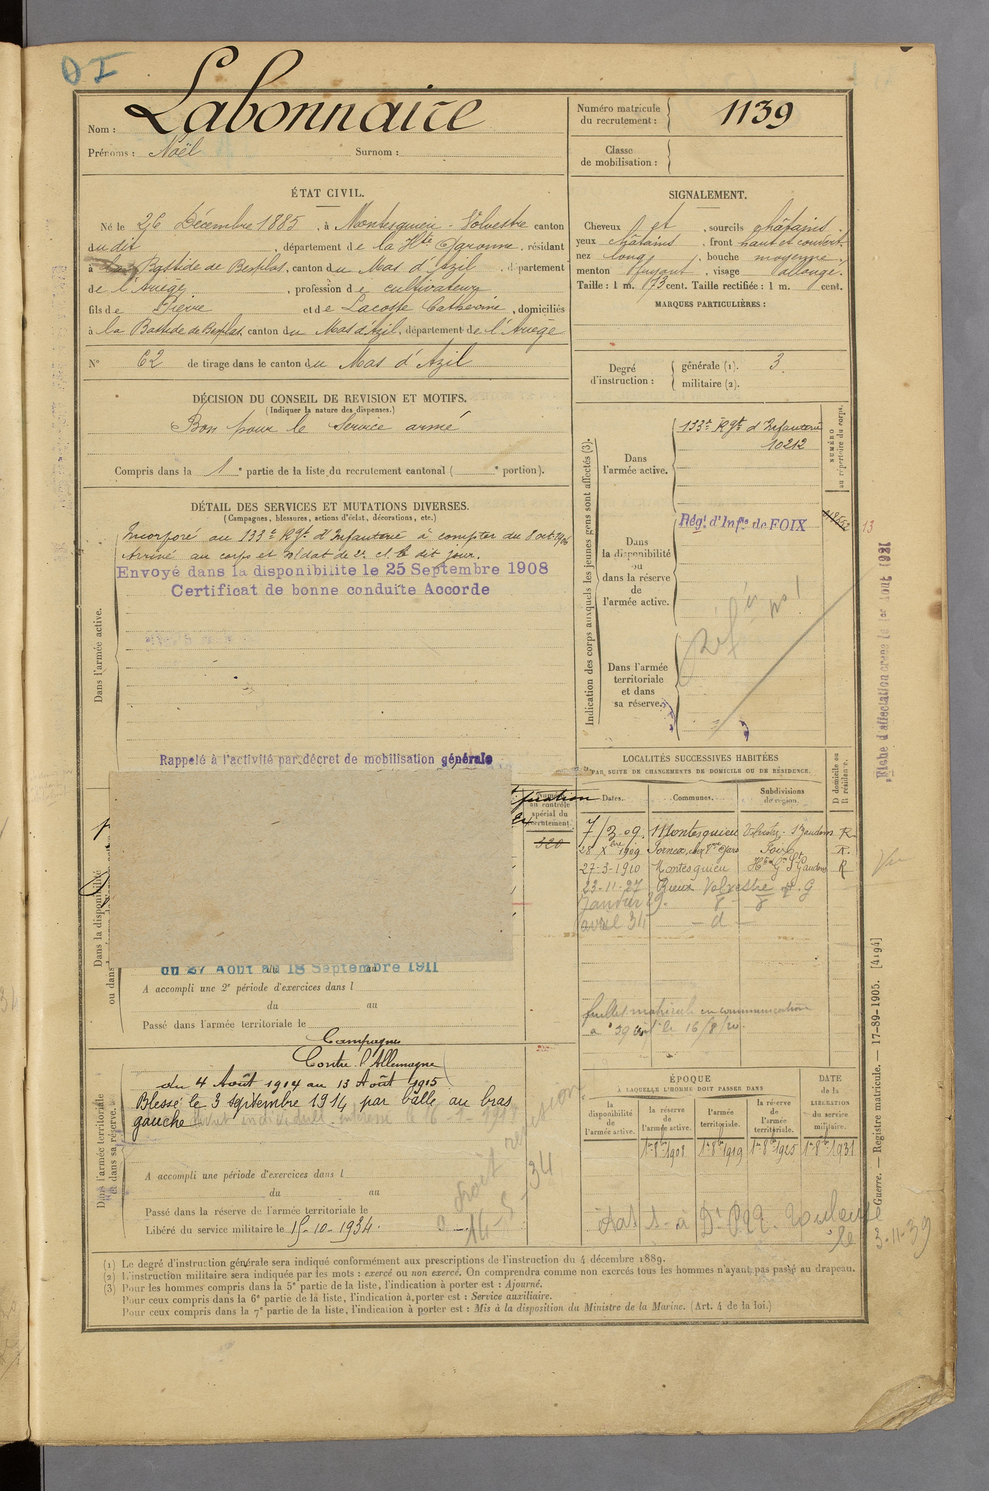 Nom : Labonnaire
Prénoms : Noël Surnom :
Numéro matricule du recrutement : 1139
Classe de mobilisation :
ÉTAT CIVIL.
Né le 26 Décembre 1885, à Montesquieu-Volvestre canton
dudit, département de la Hte Garonne, résidant
à la Bastide de Besplas, canton du Mas d'Azil, département
de l'Ariège, profession de cultivateur
fils de Pierre et de Lacoste Catherine, domiciliés
à la Bastide de Besplas, canton du Mas d'Azil, département de l'Ariège
N° 62 de tirage dans le canton du Mas d'Azil
SIGNALEMENT.
Cheveux et, sourcils châtains
yeux châtains, front haut et couvert.
nez long, bouche moyenne,
menton fuyant, visage allongé.
Taille : 1 m. 73 cent. Taille rectifiée : 1 m. cent.
MARQUES PARTICULIÈRES :
Degré d'instruction : générale (1). 3
militaire (2).
DÉCISION DU CONSEIL DE REVISION ET MOTIFS.
(Indiquer la nature des dispenses.)
Bon pour le Service armé
Compris dans la 1e partie de la liste du recrutement cantonal ( e portion).
DÉTAIL DES SERVICES ET MUTATIONS DIVERSES.
(Campagnes, blessures, actions d'éclat, décorations, etc.)
Dans l'armée active.
Incorporé au 133e Rgt d'Infanterie à compter du 8 oct 1906
Arrivé au corps et sldat de 2e cl. le dit jour.
Envoyé dans la disponibilite le 25 Septembre 1908
Certificat de bonne conduite Accorde
Rappelé à l'activité par décret de mobilisation générale
Dans la disponibilité
ou dans
au contrôle
spécial du
recrutement.
320
du 27 Aout au 18 Septembre 1911
A accompli une 2e période d'exercices dans l
du au
Passé dans l'armée territoriale le
Dans l'armée territoriale
et dans sa réserve.
Campagne
Contre l'Allemagne
du 4 Août 1914 au 13 Août 1915
Blessé le 3 septembre 1914 par balle au bras
gauche
A accompli une période d'exercices dans l
du au
Passé dans la réserve de l'armée territoriale le
Libéré du service militaire le 15-10-1934.
Indication des corps auxquels les jeunes gens sont affectés (3).
NUMÉRO
au répertoire du corps.
Dans l'armée active.
133e Rgt d'Infanterie
10212
Dans
la disponibilité
ou
dans la réserve
de
l'armée active.
Régt d'Infie de FOIX
13
Dans l'armée
territoriale
et dans
sa réserve.
LOCALITÉS SUCCESSIVES HABITÉES
PAR SUITE DE CHANGEMENTS DE DOMICILE OU DE RÉSIDENCE.
Dates. Communes. Subdivisions de région. D domicile ou R résidence.
7/3 09. Montesquieu Volvestre St Gaudens R
28 Xbre 1909 Foix R.
27-3-1910 Montesquieu Hte Gne St Gaudens R
23-11-27 Rieux Volvestre St. G
Janvier 29.
avril 34 — d —
feuillet matricule en communication
16/8/20.
ÉPOQUE
À LAQUELLE L'HOMME DOIT PASSER DANS
la disponibilité de l'armée active.
la réserve de l'armée active.
l'armée territoriale.
la réserve de l'armée territoriale.
DATE de la LIBÉRATION du service militaire.
1er 8bre 1908 1er 8bre 1919 1er 8bre 1925 1er 8bre 1931
3-11-39
Fiche d'affectation avant le 1er Aout 1921
Guerre. — Registre matricule. — 17-89-1905. [4194]
(1) Le degré d'instruction générale sera indiqué conformément aux prescriptions de l'instruction du 4 décembre 1889.
(2) L'instruction militaire sera indiquée par les mots : exercé ou non exercé. On comprendra comme non exercés tous les hommes n'ayant pas passé au drapeau.
(3) Pour les hommes compris dans la 5e partie de la liste, l'indication à porter est : Ajourné.
Pour ceux compris dans la 6e partie de la liste, l'indication à porter est : Service auxiliaire.
Pour ceux compris dans la 7e partie de la liste, l'indication à porter est : Mis à la disposition du Ministre de la Marine. (Art. 4 de la loi.)